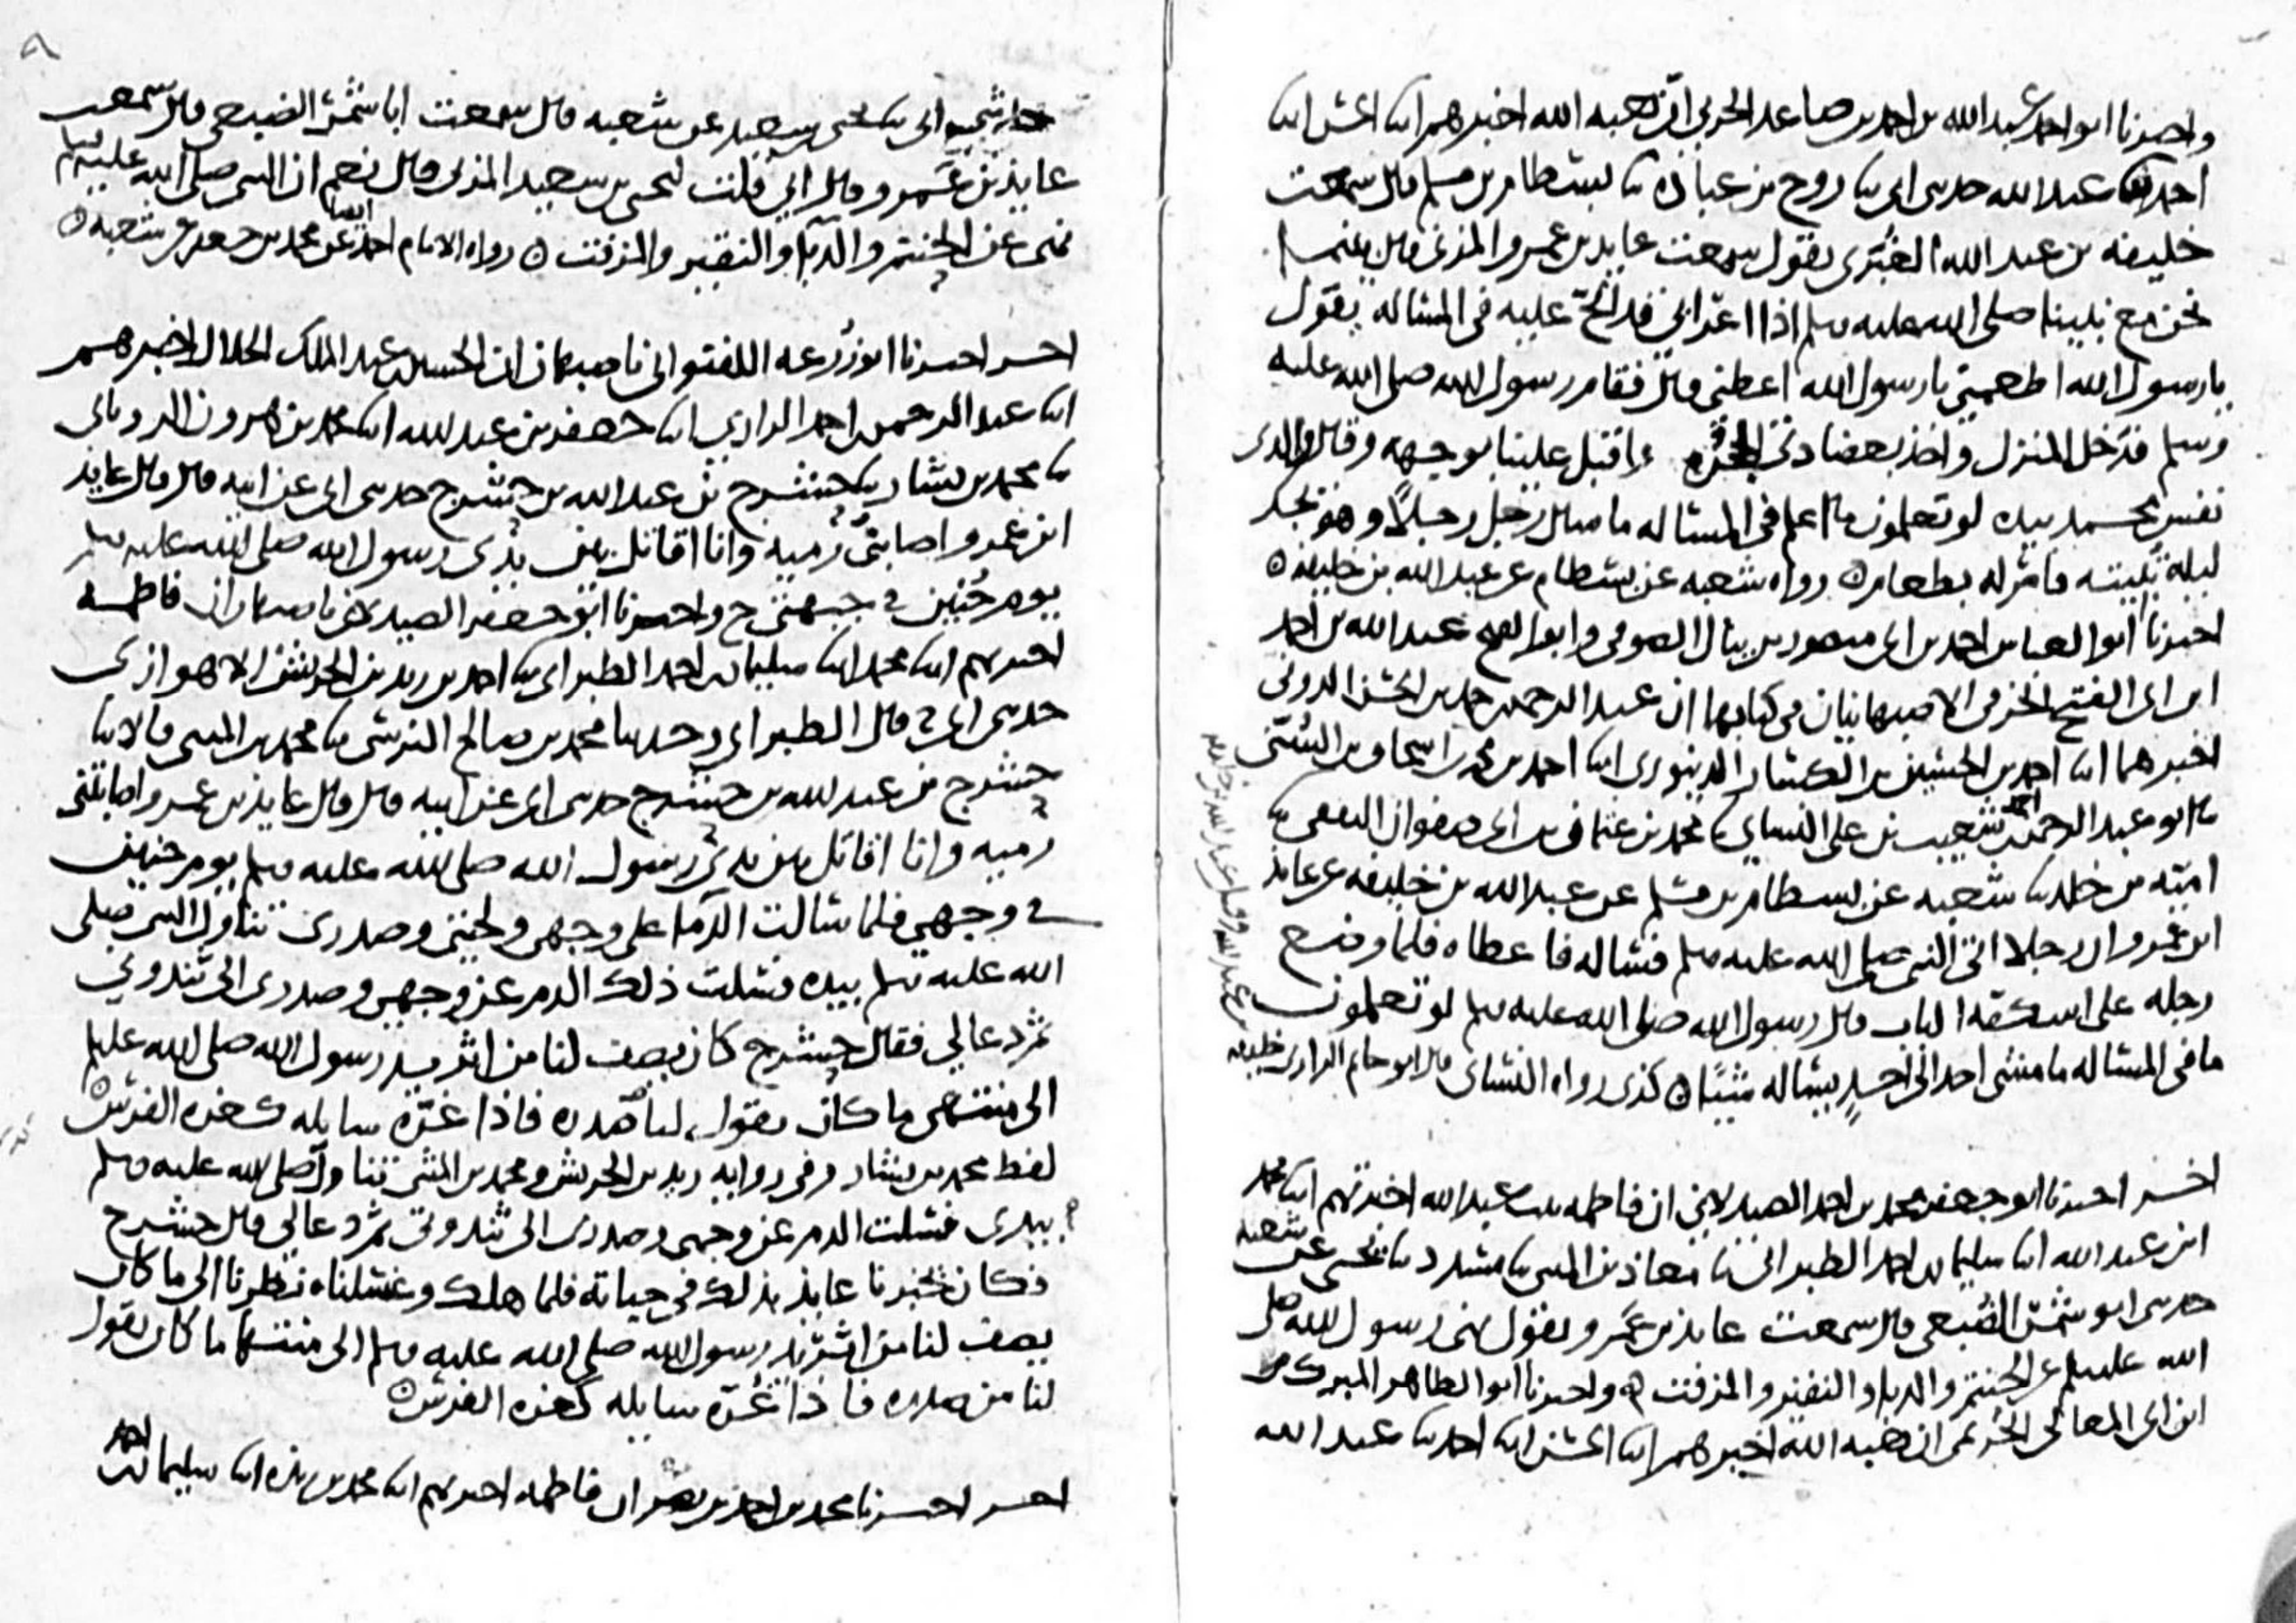 واخبرنا ابو احمد عبد الله بن احمد بن صاعد الحربي ان هبه الله اخبرهم ابنا الحسن ابنا
احمد ثنا عبد الله حدثني ابي ثنا روح بن عباده ثنا بسطام بن مسلم قال سمعت
خليفه بن عبد الله الغبري يقول سمعت عايذ بن عمرو المزني قال بينما
نحن مع نبينا صلى الله عليه وسلم اذا اعرابي قد الح عليه في المساله يقول
يا رسول الله اطعمني يا رسول الله اعطني قال فقام رسول الله صلى الله عليه
وسلم فدخل المنزل واخذ بعضادتي الحجره واقبل علينا بوجهه وقال والذي
نفس محمد بيده لو تعلمون ما اعلم في المساله ما سال رجل رجلا وهو يجد
ليله تبيته فامر له بطعام رواه شعبه عن بسطام عن عبد الله بن خليفه
اخبرنا ابو العباس احمد بن ابي منصور بن ينال الصوفي وابو الفتح عبد الله بن احمد
ابن ابي الفتح الخرقي الاصبهانيان في كتابهما ان عبد الرحمن بن حمد بن الحسن الدوني
اخبرهما ابنا احمد بن الحسين بن الكسار الدينوري ابنا احمد بن محمد بن اسحاق بن السني
ثنا ابو عبد الرحمن احمد بن شعيب بن علي النساي ثنا محمد بن عثمان بن ابي صفوان الثقفي ثنا
اميه بن خالد ثنا شعبه عن بسطام بن مسلم عن عبد الله بن خليفه عن عايذ
ابن عمرو ان رجلا اتى النبي صلى الله عليه وسلم فساله فاعطاه فلما وضع
رجله على اسكفه الباب قال رسول الله صلى الله عليه وسلم لو تعلمون
ما في المساله ما مشى احد الى احد يساله شيئا كذى رواه النساي قال ابو حاتم الرازي خليفه
اخبرنا ابو جعفر محمد بن احمد الصيدلاني ان فاطمه بنت عبد الله اخبرتهم ابنا محمد
ابن عبد الله ابنا سليمان بن احمد الطبراني ثنا معاذ بن المثنى ثنا مسدد ثنا يحيى عن شعبه
حدثني ابو شمر الضبعي قال سمعت عايذ بن عمرو يقول نهى رسول الله صلى
الله عليه وسلم عن الحنتم والدبا والنقير والمزفت واخبرنا ابو الطاهر المبارك
ابن ابي المعالي الحريمي ان هبه الله اخبرهم ابنا الحسن ابنا احمد ثنا عبد الله
حدثني ابي ثنا يحيى بن سعيد عن شعبه قال سمعت ابا شمر الضبعي قال سمعت
عايذ بن عمرو وقال ابي قلت ليحيى بن سعيد المزني قال نعم ان النبي صلى الله عليه وسلم
نهى عن الحنتم والدبا والنقير والمزفت رواه الامام احمد ايضا عن محمد بن جعفر عن شعبه
اخبرنا ابو زرعه اللفتواني باصبهان ان الحسين بن عبد الملك الخلال اخبرهم
ابنا عبد الرحمن بن احمد الرازي ابنا جعفر بن عبد الله ابنا محمد بن هرون الروياني
ثنا محمد بن بشار ثنا حشرج بن عبد الله بن حشرج حدثني ابي عن ابيه قال قال عايذ
ابن عمرو اصابتني رميه وانا اقاتل بين يدي رسول الله صلى الله عليه وسلم
يوم حنين في جبهتي ح واخبرنا ابو جعفر الصيدلاني باصبهان ان فاطمه
اخبرتهم ابنا محمد ابنا سليمان بن احمد الطبراني ثنا احمد بن زيد بن الحريش الاهوازي
حدثني ابي ح قال الطبراني وحدثنا محمد بن صالح النرسي ثنا محمد بن المثنى قالا ثنا
حشرج بن عبد الله بن حشرج حدثني ابي عن ابيه قال قال عايذ بن عمرو اصابتني
رميه وانا اقاتل بين يدي رسول الله صلى الله عليه وسلم يوم حنين
في وجهي فلما سالت الدما على وجهي ولحيتي وصدري تناول النبي صلى
الله عليه وسلم بيده فسلت ذلك الدم عن وجهي وصدري الى ثندوتي
ثم دعا لي فقال حشرج كان يصف لنا من اثر يد رسول الله صلى الله عليه وسلم
الى منتهى ما كان يقول لنا فاذا غره سايله كغره الفرس
لفظ محمد بن بشار وفي روايه زيد بن الحريش ومحمد بن المثنى تناول صلى الله عليه وسلم
فسلت الدم عن وجهي وصدري الى ثندوتي ثم دعا لي قال حشرج
فكان يخبرنا عايذ بذلك في حياته فلما هلك وغسلناه نظرنا الى ما كان
يصف لنا من اثر يد رسول الله صلى الله عليه وسلم الى منتهى ما كان يقول
لنا من صدره فاذا غره سايله كغره الفرس
اخبرنا محمد بن احمد بن نصر ان فاطمه اخبرتهم ابنا محمد بن ريذه ابنا سليمان بن احمد